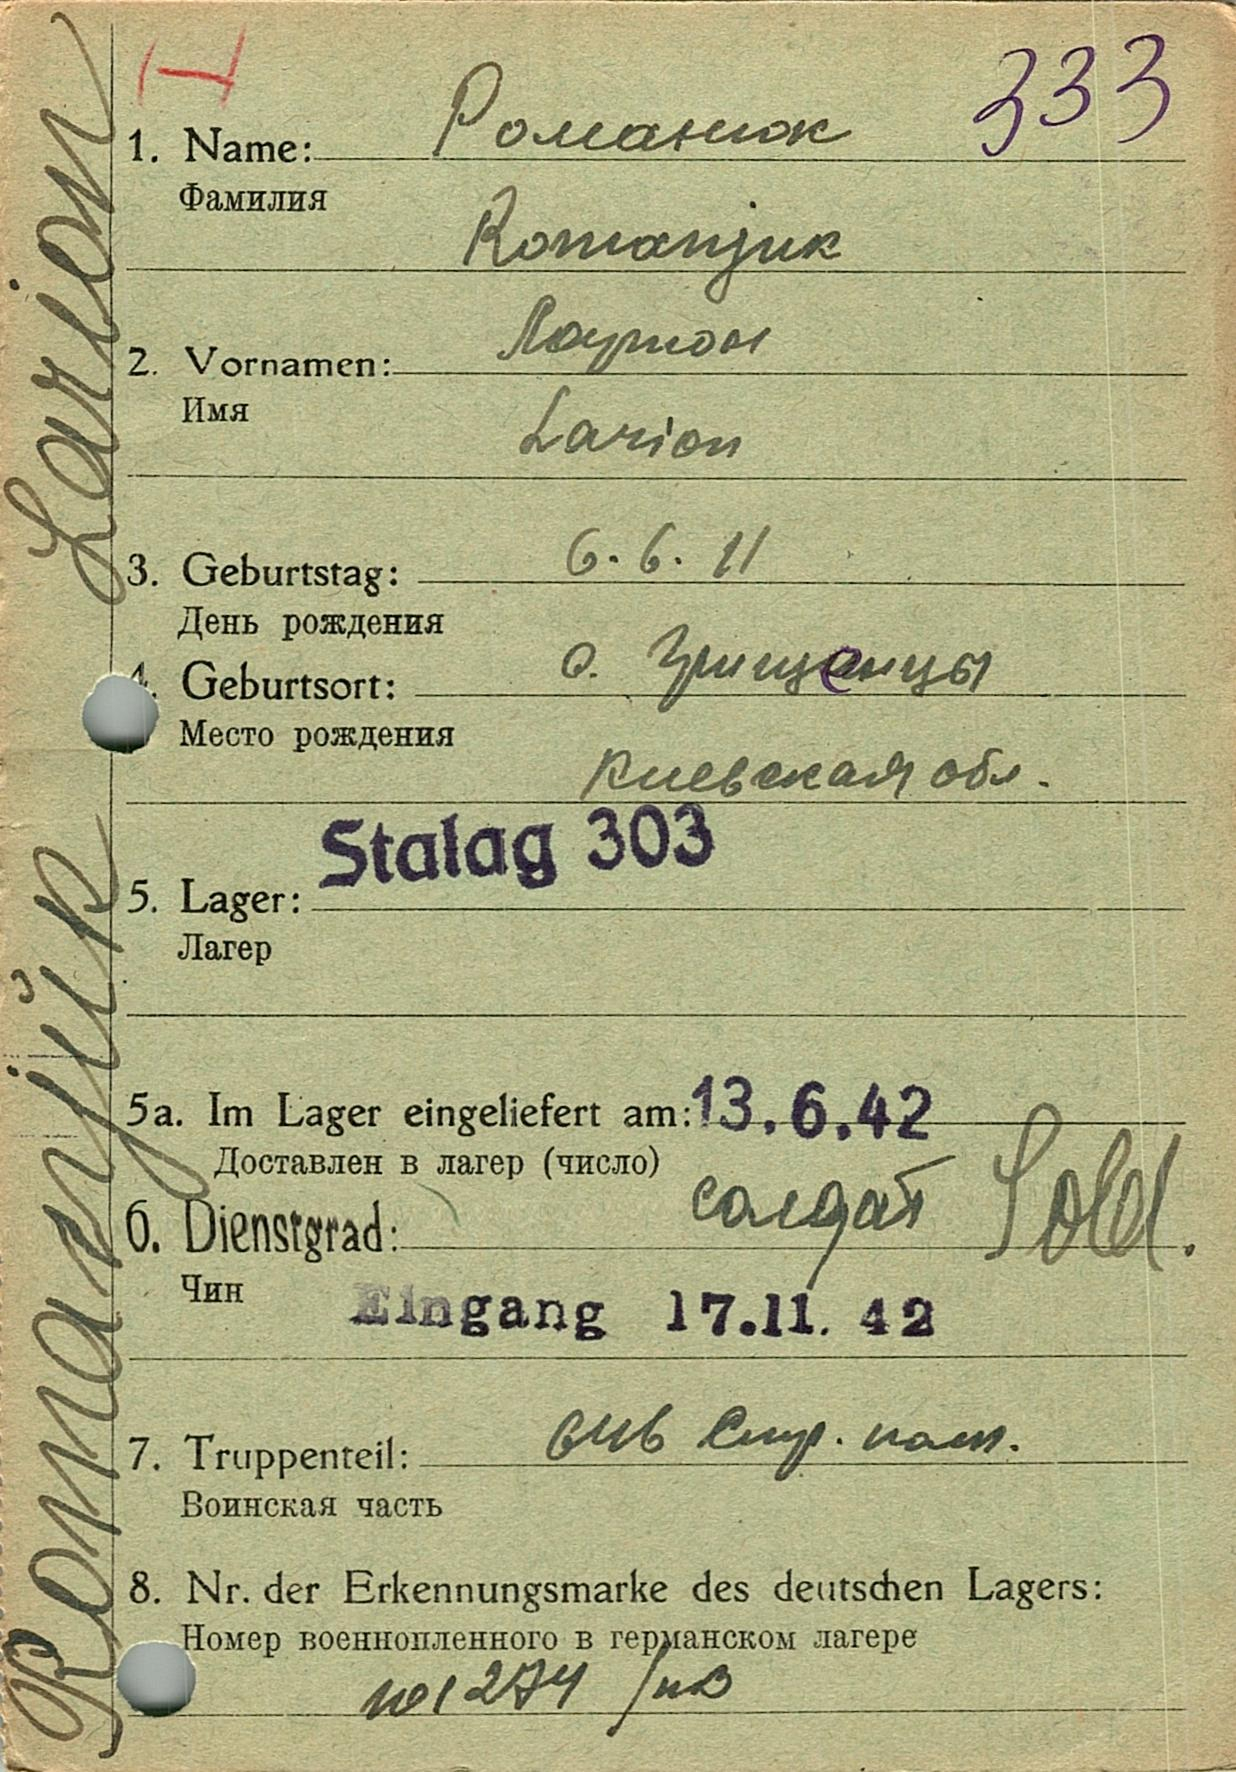 333
1. Name: Романюк
Фамилия
Romanjuk
2. Vornamen: Лаурион
Имя
Larion
3. Geburtstag: 6. 6. 11
День рождения
4. Geburtsort: с. Грищенцы
Место рождения
Киевская обл.
Stalag 303
5. Lager:
Лагер
5a. Im Lager eingeliefert am: 13.6.42
Доставлен в лагер (число)
6. Dienstgrad: солдат Sold.
Чин
Eingang 17.11.42
7. Truppenteil: Стр. полк.
Воинская часть
8. Nr. der Erkennungsmarke des deutschen Lagers:
Номер военнопленного в германском лагере
1274
Romanjuk Larion